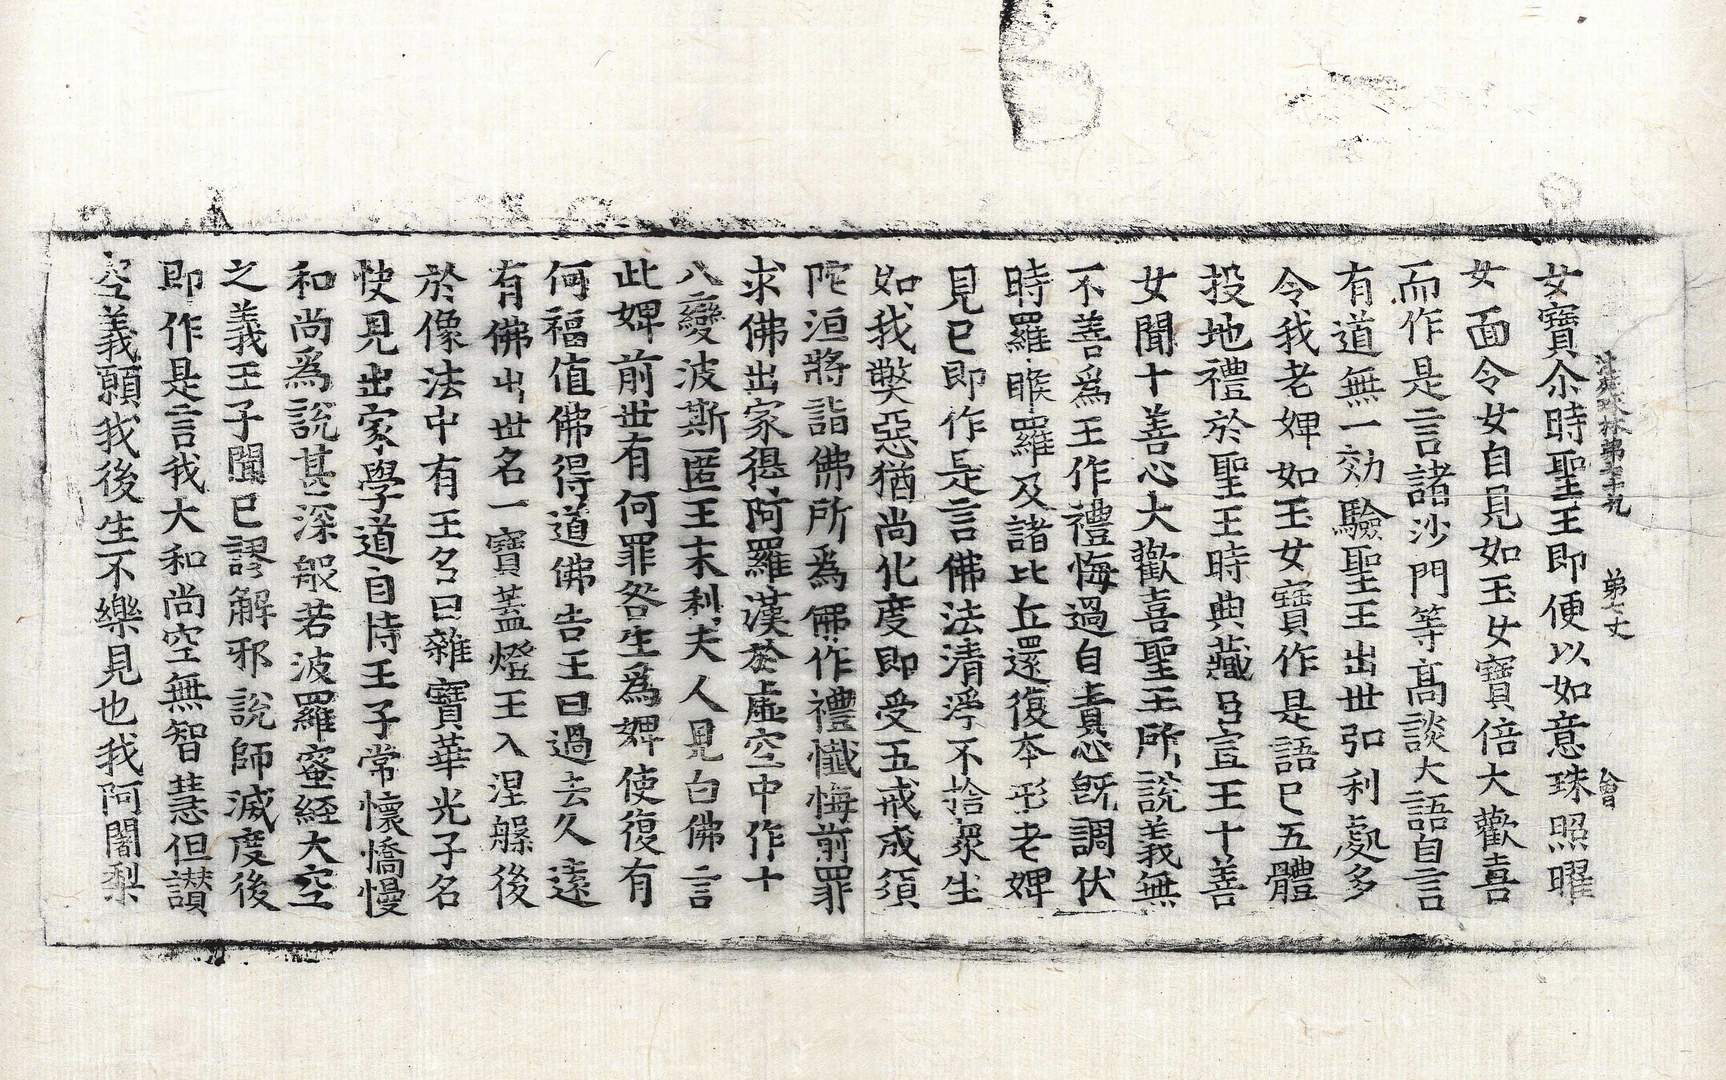 法苑珠林第五十九 第七丈 會
女寶尒時聖王即便以如意珠照曜
女面令女自見如玉女寶倍大歡喜
而作是言諸沙門等髙談大語自言
有道無一効驗聖王出世弘利處多
令我老婢如玉女寶作是語已五體
投地禮於聖王時典藏臣宣王十善
女聞十善心大歡喜聖王所說義無
不善爲王作禮悔過自責心旣調伏
時羅睺羅及諸比丘還復本形老婢
見已即作是言佛法清淨不捨衆生
如我弊惡猶尚化度即受五戒成須
陁洹將詣佛所爲佛作禮懺悔前罪
求佛出家得阿羅漢於虛空中作十
八變波斯匿王末利夫人見白佛言
此婢前世有何罪咎生爲婢使復有
何福值佛得道佛告王曰過去久遠
有佛出世名一寶蓋燈王入涅槃後
於像法中有王名曰雜寶華光子名
快見出家學道自恃王子常懷憍慢
和尚爲說甚深般若波羅蜜經大空
之義王子聞已謬解邪說師滅度後
即作是言我大和尚空無智慧但讃
空義願我後生不樂見也我阿闍梨